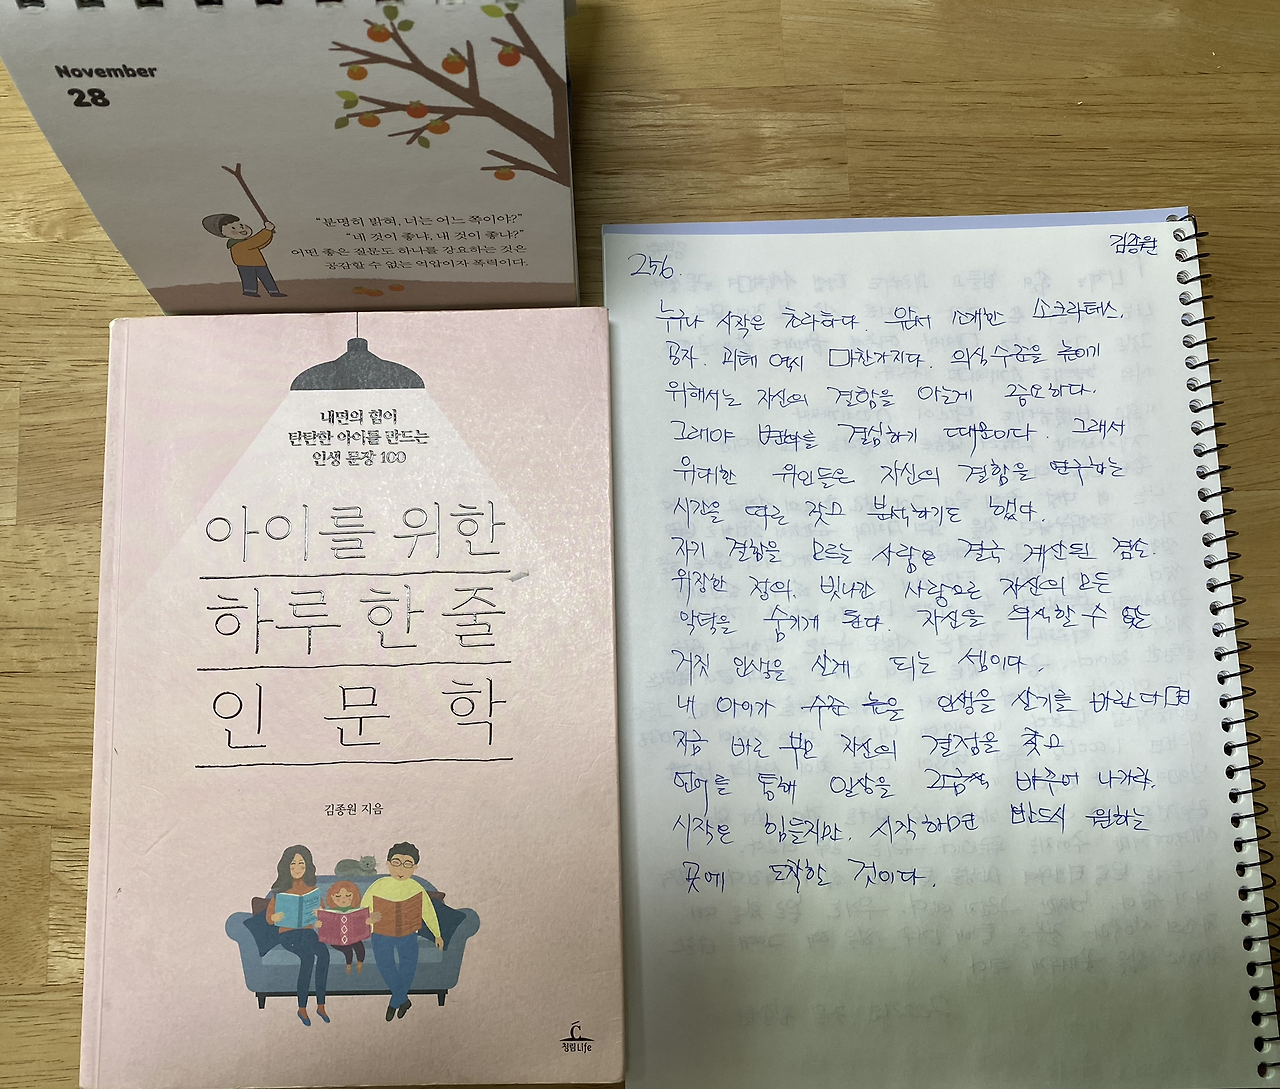 November
28
"분명히 밝혀, 너는 어느 쪽이야?"
"네 것이 좋냐, 내 것이 좋냐?"
어떤 좋은 질문도 하나를 강요하는 것은
공감할 수 없는 억압이자 폭력이다.
내면의 힘이
탄탄한 아이를 만드는
인생 문장 100
아이를 위한
하루 한 줄
인문학
김종원 지음
청림Life
김종원
256.
누구나 시작은 초라하다. 앞서 소개한 소크라테스,
공자. 괴테 역시 마찬가지다. 의식 수준을 높이기
위해서는 자신의 결함을 아는게 중요하다.
그래야 변화를 결심하기 때문이다. 그래서
위대한 위인들은 자신의 결함을 연구하는
시간을 따로 갖고 분석하기도 했다.
자기 결함을 모르는 사람은 결국 계산된 겸손.
위장한 정의. 빗나간 사랑으로 자신의 모든
악덕을 숨기게 된다. 자신을 의식할 수 없는
거짓 인생을 살게 되는 셈이다.
내 아이가 수준 높은 인생을 살기를 바란다면
지금 바로 부모 자신의 결점을 찾고
언어를 통해 일상을 조금씩 바꾸어 나가라.
시작은 힘들지만. 시작하면 반드시 원하는
곳에 도착할 것이다.